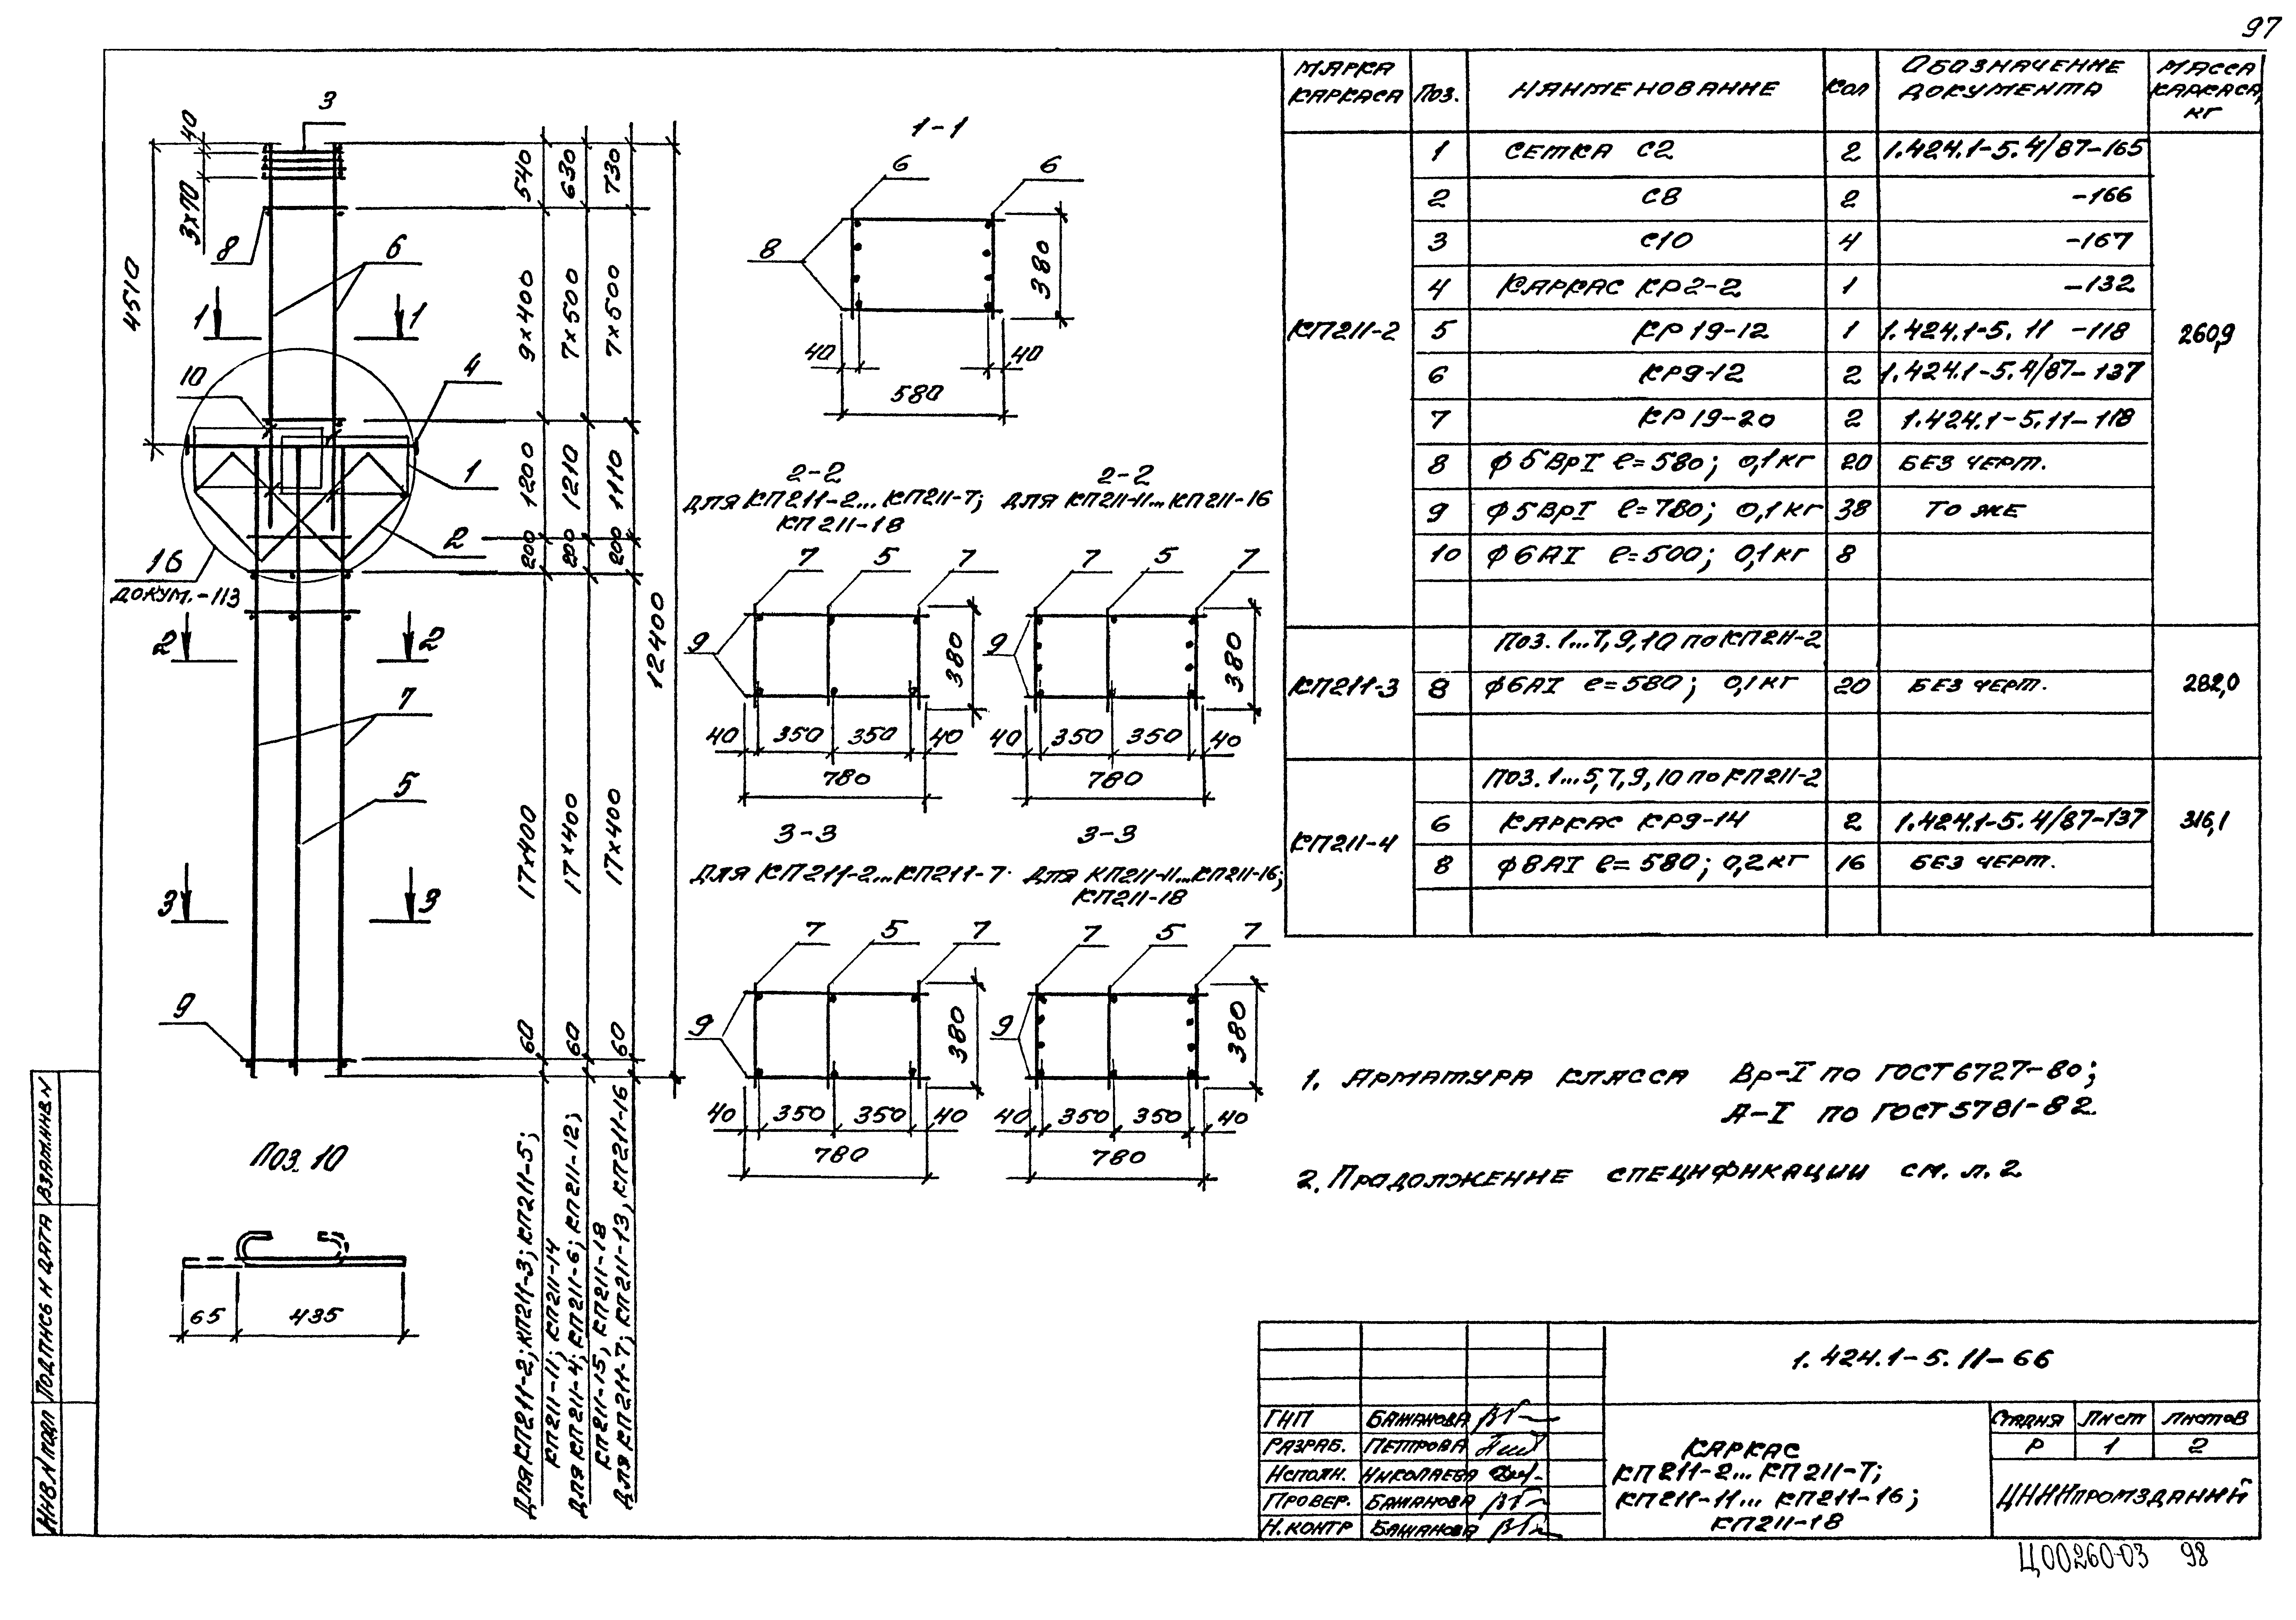 97
МАРКА КАРКАСА | ПОЗ. | НАИМЕНОВАНИЕ | КОЛ | ОБОЗНАЧЕНИЕ ДОКУМЕНТА | МАССА КАРКАСА, КГ
КП211-2 | 1 | СЕТКА С2 | 2 | 1.424.1-5.4/87-165 | 260,9
2 | С8 | 2 | -166
3 | С10 | 4 | -167
4 | КАРКАС КР2-2 | 1 | -132
5 | КР19-12 | 1 | 1.424.1-5.11 -118
6 | КР9-12 | 2 | 1.424.1-5.4/87-137
7 | КР19-20 | 2 | 1.424.1-5.11-118
8 | ф5ВрI ℓ=580; 0,1кг | 20 | БЕЗ ЧЕРТ.
9 | ф5ВрI ℓ=780; 0,1кг | 38 | ТО ЖЕ
10 | ф6АI ℓ=500; 0,1кг | 8
КП211-3 | ПОЗ. 1...7,9,10 по КП211-2 | 282,0
8 | ф6АI ℓ=580; 0,1кг | 20 | БЕЗ ЧЕРТ.
КП211-4 | ПОЗ. 1...5,7,9,10 по КП211-2 | 316,1
6 | КАРКАС КР9-14 | 2 | 1.424.1-5.4/87-137
8 | ф8АI ℓ=580; 0,2кг | 16 | БЕЗ ЧЕРТ.
3
40
3х70
4510
8
6
1 1
10
4
1
2
16
ДОКУМ.-113
2 2
7
5
3 3
9
540 630 730
9х400 7х500 7х500
1200 1210 1110
200 200 200
17х400 17х400 17х400
60 60 60
12400
Для КП211-2; КП211-3; КП211-5;
КП211-11; КП211-14
Для КП211-4; КП211-6; КП211-12;
КП211-15, КП211-18
Для КП211-7; КП211-13, КП211-16
Поз. 10
65 435
1-1
6 6
8
380
40 40
580
2-2
для КП211-2...КП211-7;
КП211-18
7 5 7
9
380
40 350 350 40
780
2-2
для КП211-11...КП211-16
7 5 7
9
380
40 350 350 40
780
3-3
для КП211-2...КП211-7.
7 5 7
9
380
40 350 350 40
780
3-3
для КП211-11...КП211-16;
КП211-18
7 5 7
9
380
40 350 350 40
780
1. АРМАТУРА КЛАССА Вр-I по ГОСТ 6727-80;
А-I по ГОСТ 5781-82.
2. ПРОДОЛЖЕНИЕ СПЕЦИФИКАЦИИ см. л. 2
1.424.1-5.11-66
ГИП БАЖАНОВА
РАЗРАБ. ПЕТРОВА
ИСПОЛН. НИКОЛАЕВА
ПРОВЕР. БАЖАНОВА
Н.КОНТР БАЖАНОВА
КАРКАС
КП211-2...КП211-7;
КП211-11...КП211-16;
КП211-18
СТАДИЯ ЛИСТ ЛИСТОВ
Р 1 2
ЦНИИПРОМЗДАНИЙ
ИНВ.N ПОДЛ ПОДПИСЬ И ДАТА ВЗАМ.ИНВ.N
Ц00260-03 98